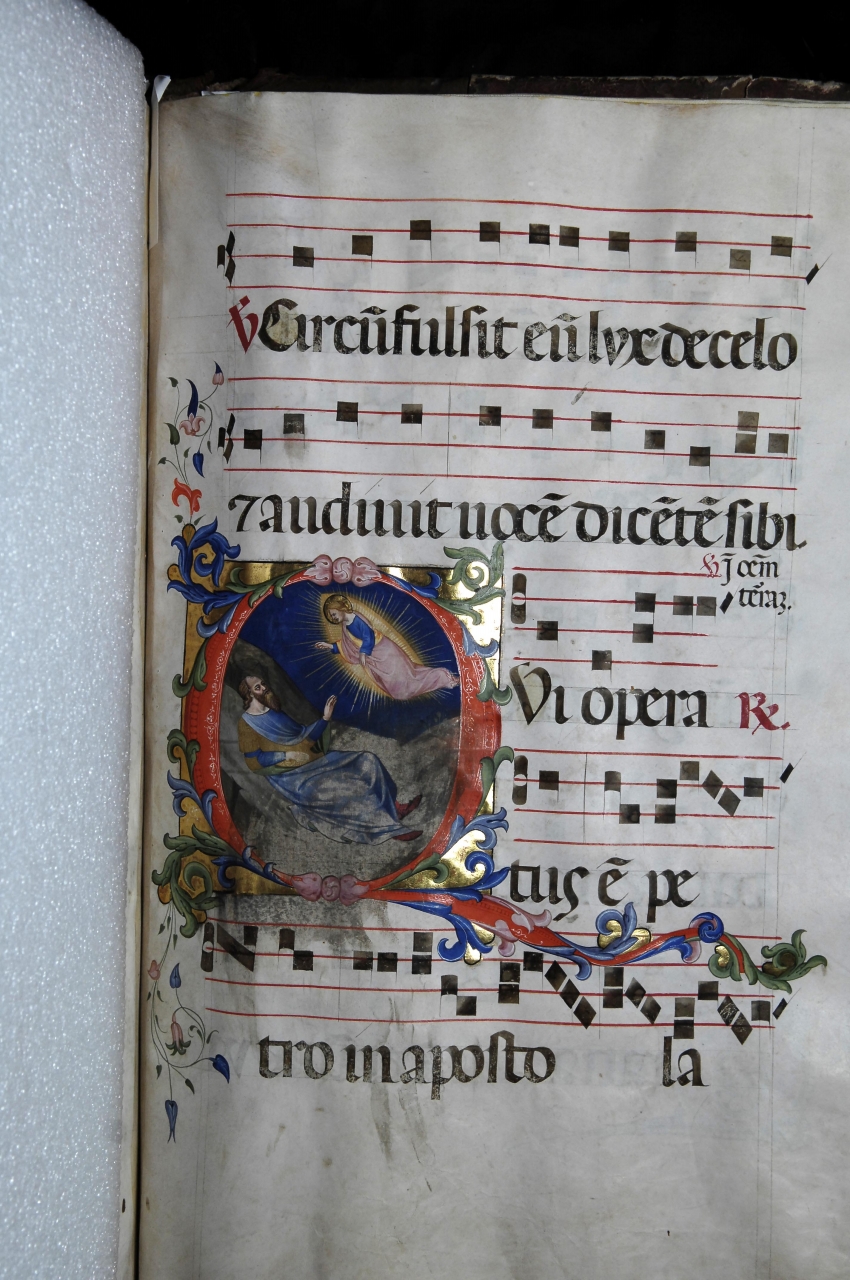 ℣ Circũfulsit eũ lvx de celo
⁊ audiuit uocẽ dicẽtẽ sibi
℣ J cem
terãz.
QVi opera ℟.
tus ẽ pe
tro in aposto la